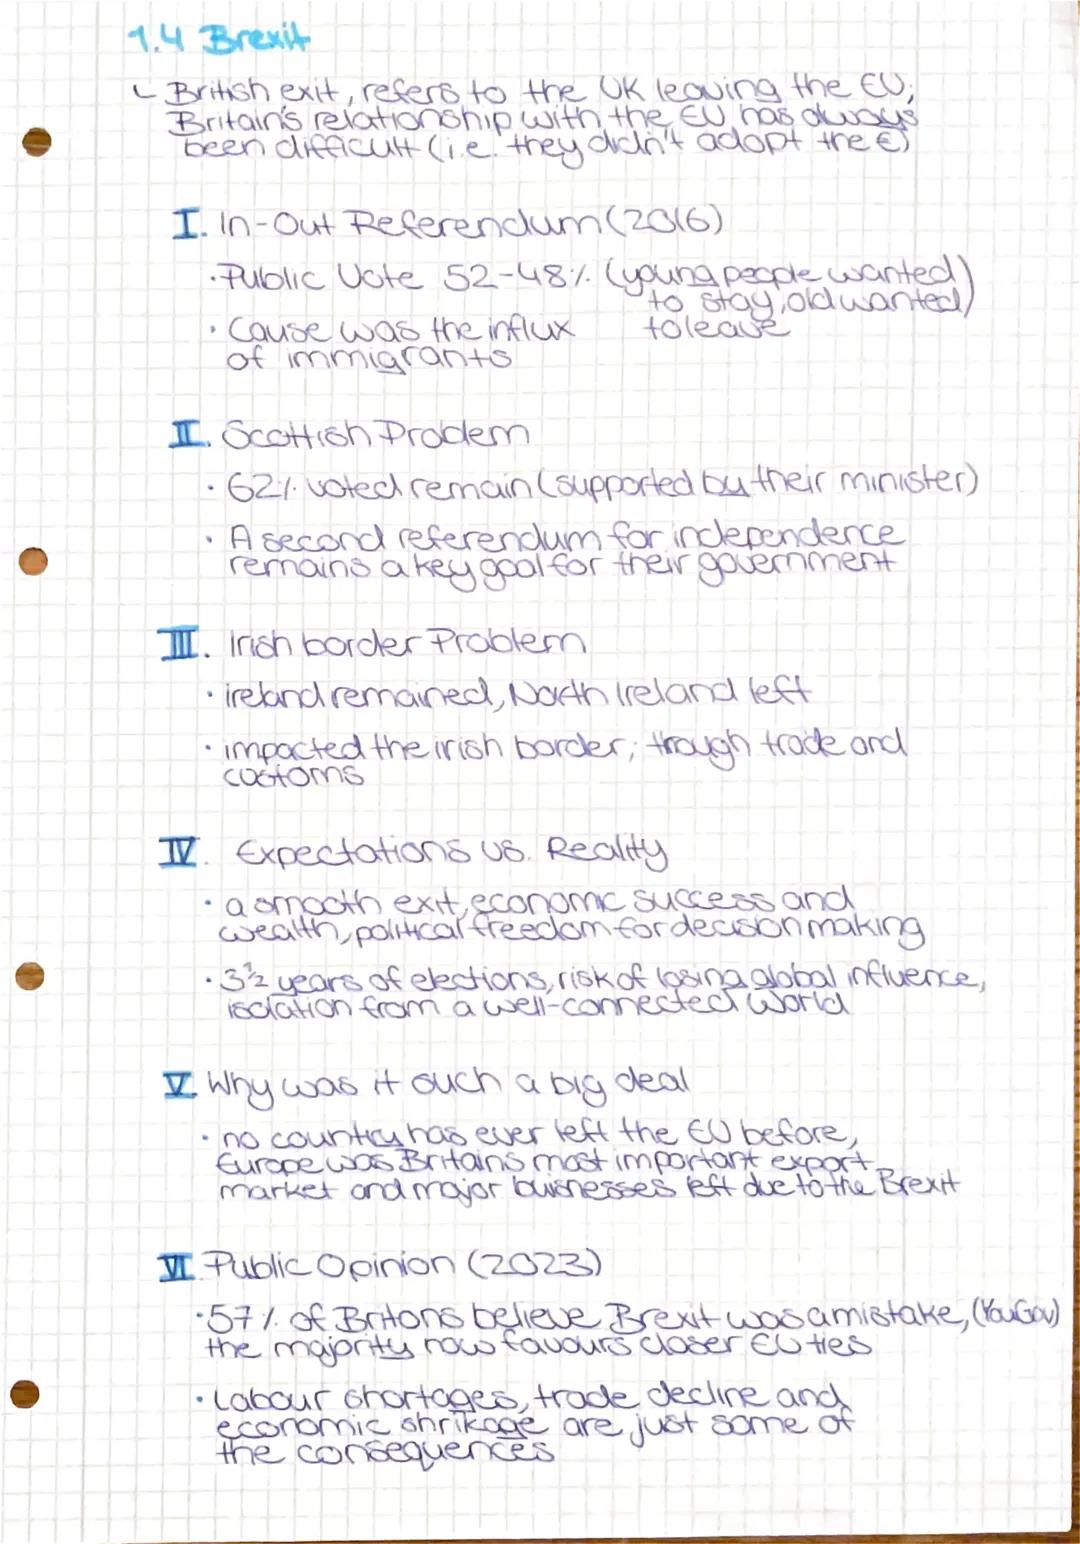 1.4 Brexit
British exit, refers to the UK leaving the EU;
Britain's relationship with the EU has always
been difficult (i.e. they didn't adopt the €)
I. In-Out Referendum (2016)
· Public Vote 52-48% (young people wanted)
to stay, old wanted
to leave
· Cause was the influx
of immigrants
II. Scottish Problem
· 62% voted remain (supported by their minister)
· A second referendum for independence
remains a key goal for their government
III. Irish border Problem
· ireland remained, North Ireland left
· impacted the irish border; trough trade and
customs
IV. Expectations vs. Reality
· a smooth exit, economic success and
wealth, political freedom for decision making
· 3½ years of elections, risk of losing global influence,
isolation from a well-connected world
V. Why was it such a big deal
· no country has ever left the EU before,
Europe was Britains most important export
market and major buisnesses left due to the Brexit
VI Public Opinion (2023)
· 57% of Britons believe Brexit was a mistake, (YouGov)
the majority now favours closer EU ties
· Labour shortages, trade decline and
economic shrikage are just some of
the consequences